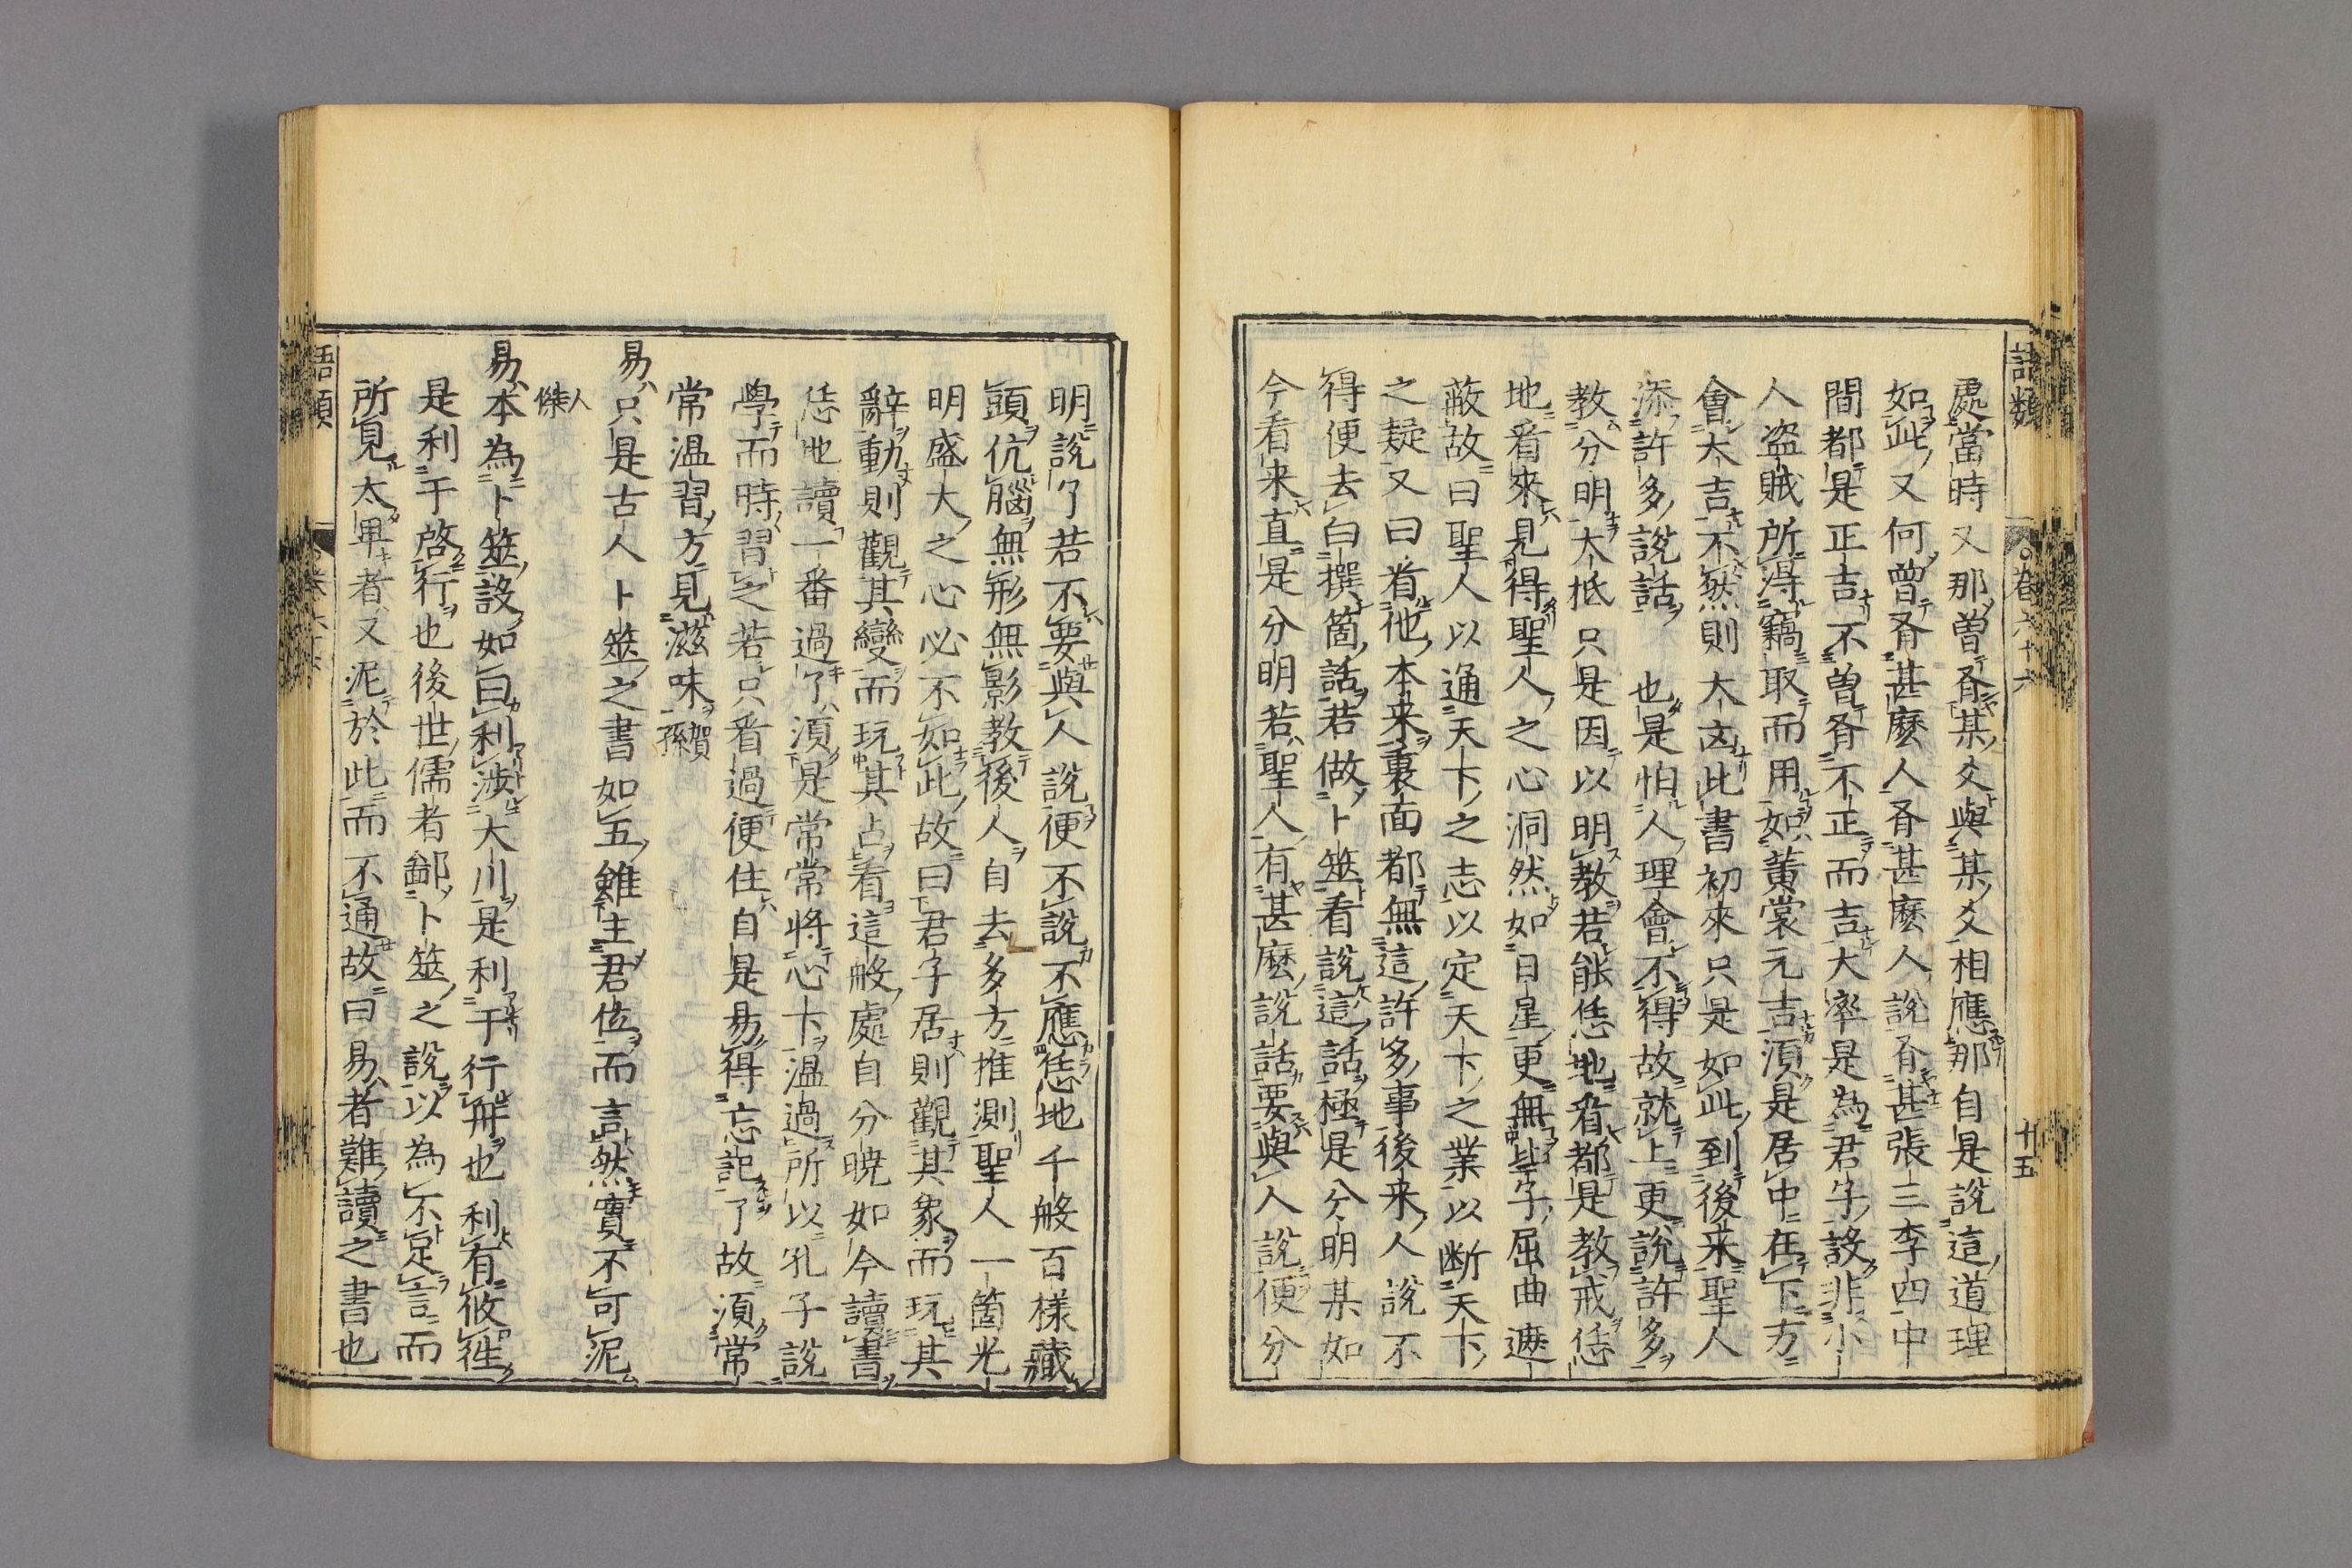 語類 卷六十六 十五
處當時又那曾有某爻與某爻相應那自是說這道理
如此又何曾有甚麼人有甚麼人說有甚張三李四中
間都是正吉不曾有不正而吉大率是為君子設非小
人盜賊所得竊取而用如黃裳元吉須是居中在下方
會大吉不然則大凶此書初來只是如此到後来聖人
添許多說話也是怕人理會不得故就上更說許多
教分明大抵只是因以明教若能恁地看都是教戒恁
地看來見得聖人之心洞然如日星更無些子屈曲遮
蔽故曰聖人以通天下之志以定天下之業以断天下
之疑又曰看他本来裏面都無這許多事後来人說不
得便去白撰箇話若做卜筮看說這話極是分明某如
今看来直是分明若聖人有甚麼說話要與人說便分
明說了若不要與人說便不說不應恁地千般百樣藏
頭伉腦無形無影教後人自去多方推測聖人一箇光
明盛大之心必不如此故曰君子居則觀其象而玩其
辭動則觀其變而玩其占看這般處自分曉如今讀書
恁地讀一番過了須是常常將心下温過所以孔子說
學而時習之若只看過便住自是易得忘記了故須常
常温習方見滋味賀孫
易只是古人卜筮之書如五雖主君位而言然實不可泥
人傑
易本為卜筮設如曰利涉大川是利于行舟也利有攸徃
是利于啓行也後世儒者鄙卜筮之說以為不足言而
所見太卑者又泥於此而不通故曰易者難讀之書也
語類